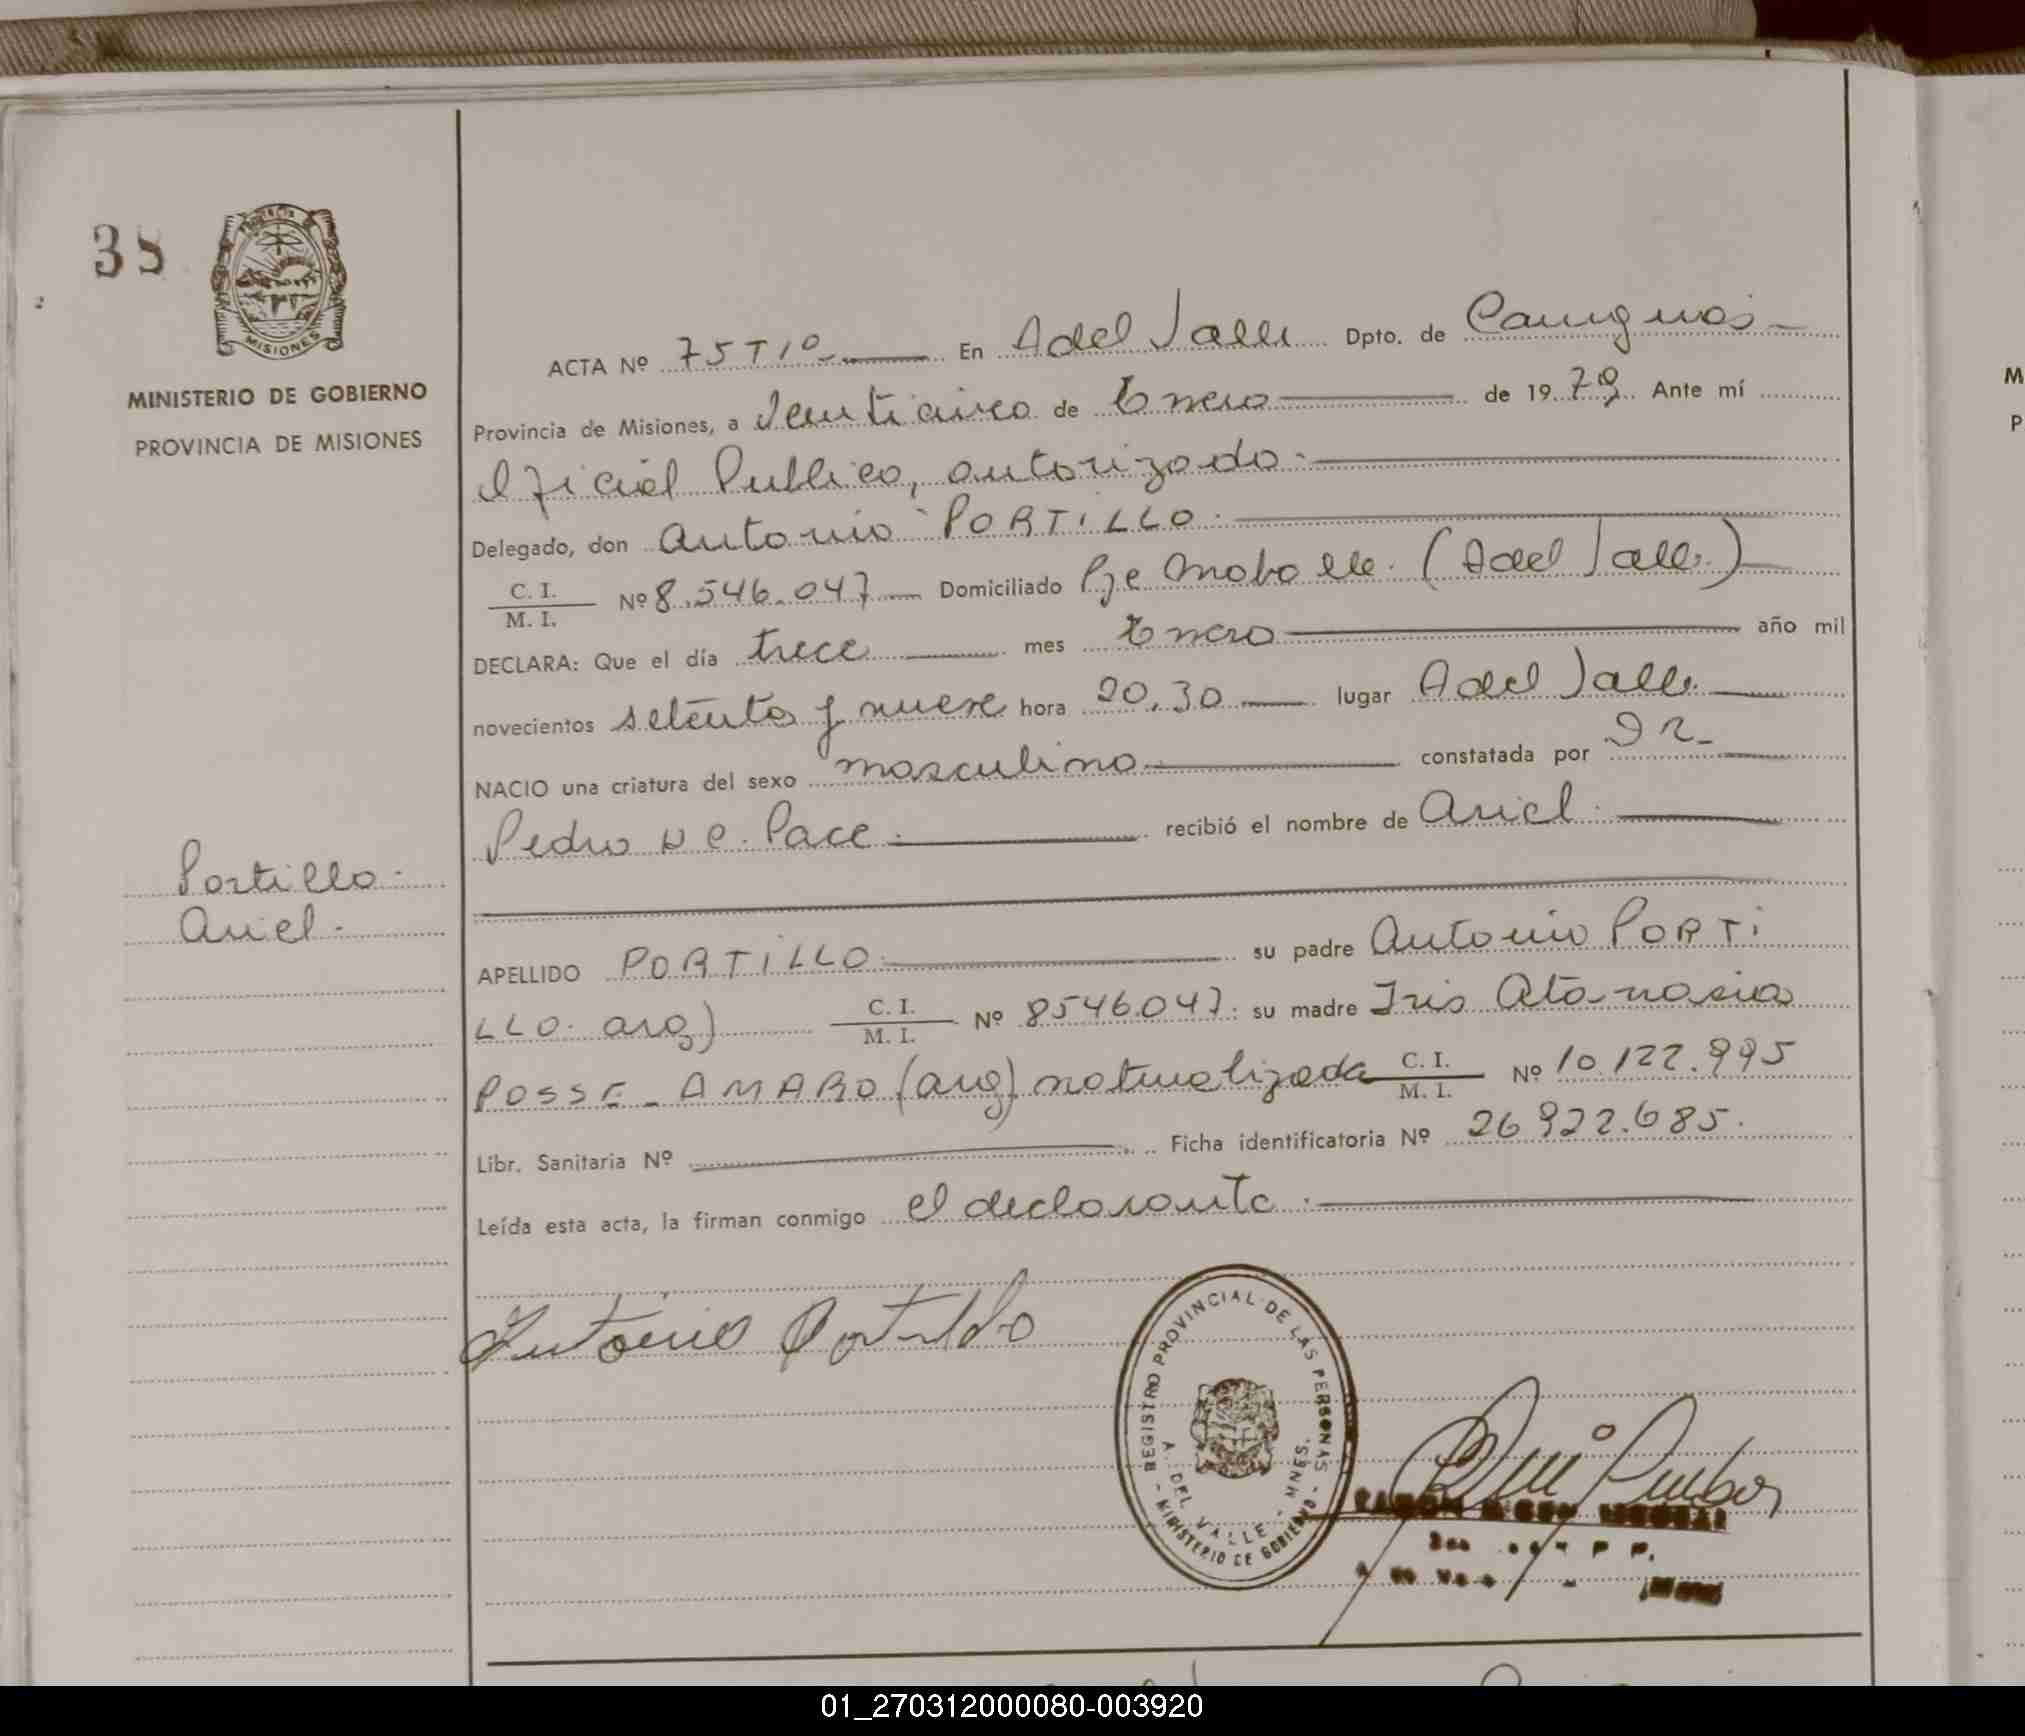 38
MISIONES
MINISTERIO DE GOBIERNO
PROVINCIA DE MISIONES
ACTA Nº 75 T 1º En A del Valle Dpto. de Cainguas
Provincia de Misiones, a Veinticinco de Enero de 1979 Ante mí
Oficial Publico, autorizado
Delegado, don Antonio PORTILLO
C. I.
M. I. Nº 8.546.047 Domiciliado Pje Mobolle. (A del Valle)
DECLARA: Que el día trece mes Enero año mil
novecientos setenta y nueve hora 20,30 lugar A del Valle
NACIO una criatura del sexo masculino constatada por Dr.
Pedro N C. Pace recibió el nombre de Ariel
Portillo
Ariel
APELLIDO PORTILLO su padre Antonio PORTI
LLO. arg) C. I. M. I. Nº 8546.047 su madre Iris Atanasia
POSSE - AMARO (arg) naturalizada C. I. M. I. Nº 10.122.995
Libr. Sanitaria Nº Ficha identificatoria Nº 26 922.685.
Leída esta acta, la firman conmigo el declarante
Antonio Portillo
REGISTRO PROVINCIAL DE LAS PERSONAS
A. DEL VALLE - MNES.
- MINISTERIO DE GOBIERNO -
M
P
01_270312000080-003920